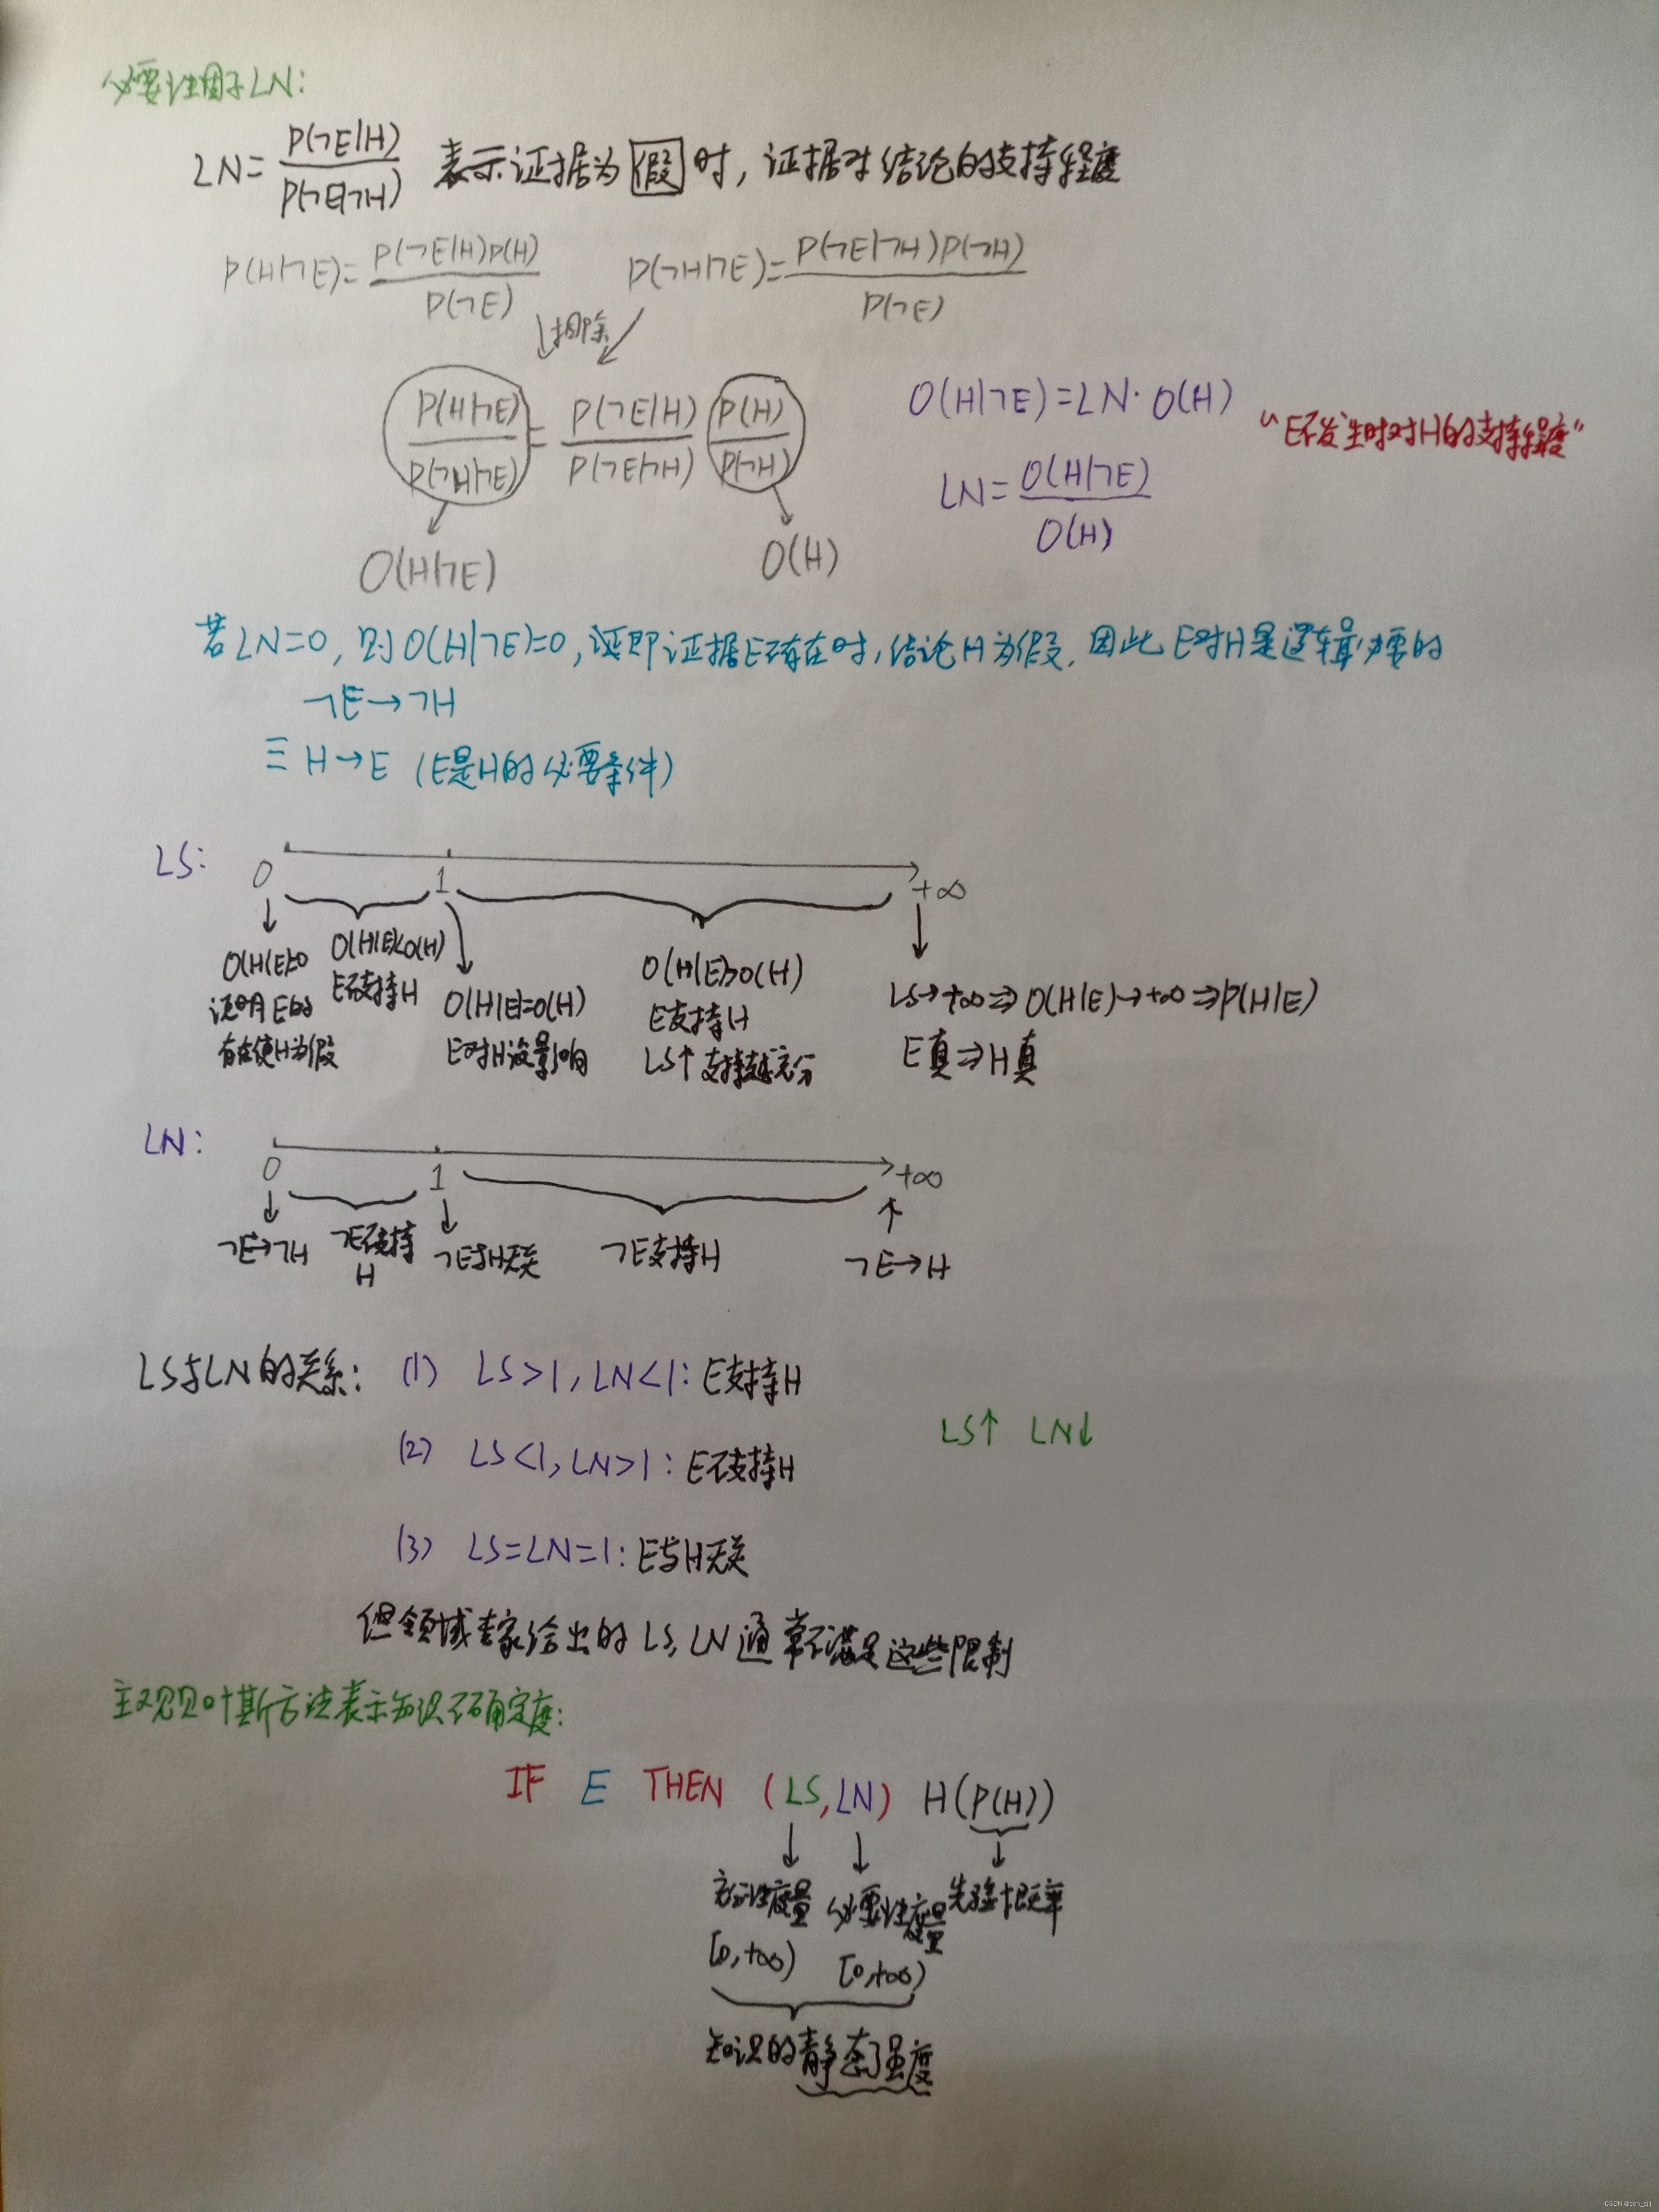 必要性因子LN:
LN=P(¬E|H)/P(¬E|¬H) 表示证据为假时,证据对结论的支持程度
P(H|¬E)=P(¬E|H)P(H)/P(¬E) P(¬H|¬E)=P(¬E|¬H)P(¬H)/P(¬E)
↓相除↙
P(H|¬E)/P(¬H|¬E)=P(¬E|H)/P(¬E|¬H) P(H)/P(¬H)
O(H|¬E)=LN·O(H)
"E不发生时对H的支持程度"
LN=O(H|¬E)/O(H)
O(H|¬E) O(H)
若LN=0,则O(H|¬E)=0,证即证据E不存在时,结论H为假.因此E对H是逻辑必要的
¬E→¬H
≡H→E (E是H的必要条件)
LS: 0 1 +∞
O(H|E)=0
说明E的
存在使H为假
O(H|E)<O(H)
E不支持H
O(H|E)=O(H)
E对H没影响
O(H|E)>O(H)
E支持H
LS↑ 支持越充分
LS→+∞⇒O(H|E)→+∞⇒P(H|E)
E真⇒H真
LN: 0 1 +∞
¬E→¬H
¬E不支持
H
¬E与H无关
¬E支持H
¬E→H
LS与LN的关系: (1) LS>1,LN<1: E支持H
LS↑ LN↓
(2) LS<1,LN>1: E不支持H
(3) LS=LN=1: E与H无关
但领域专家给出的LS,LN通常不满足这些限制
主观贝叶斯方法表示知识不确定度:
IF E THEN (LS,LN) H(P(H))
充分性度量 必要性度量 先验概率
[0,+∞) [0,+∞)
知识的静态强度
CSDN @seh_sjlj